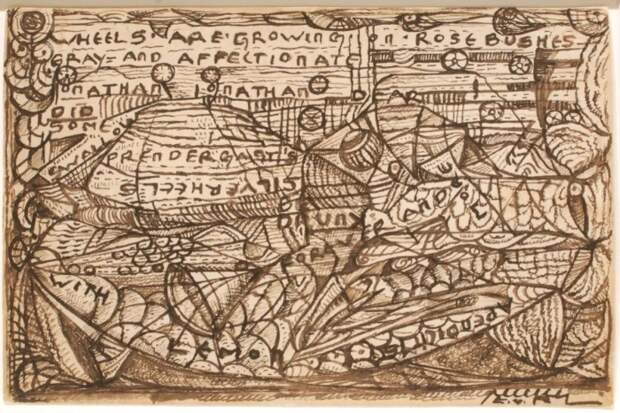 WHEELS ARE GROWING ON ROSE BUSHES
GRAY AND AFFECTIONATE
JONATHAN JONATHAN
DID
SOME
PRENDERGAST'S
SILVERHEELS
FOREVER AND
WITH LEMON APENDICITIS